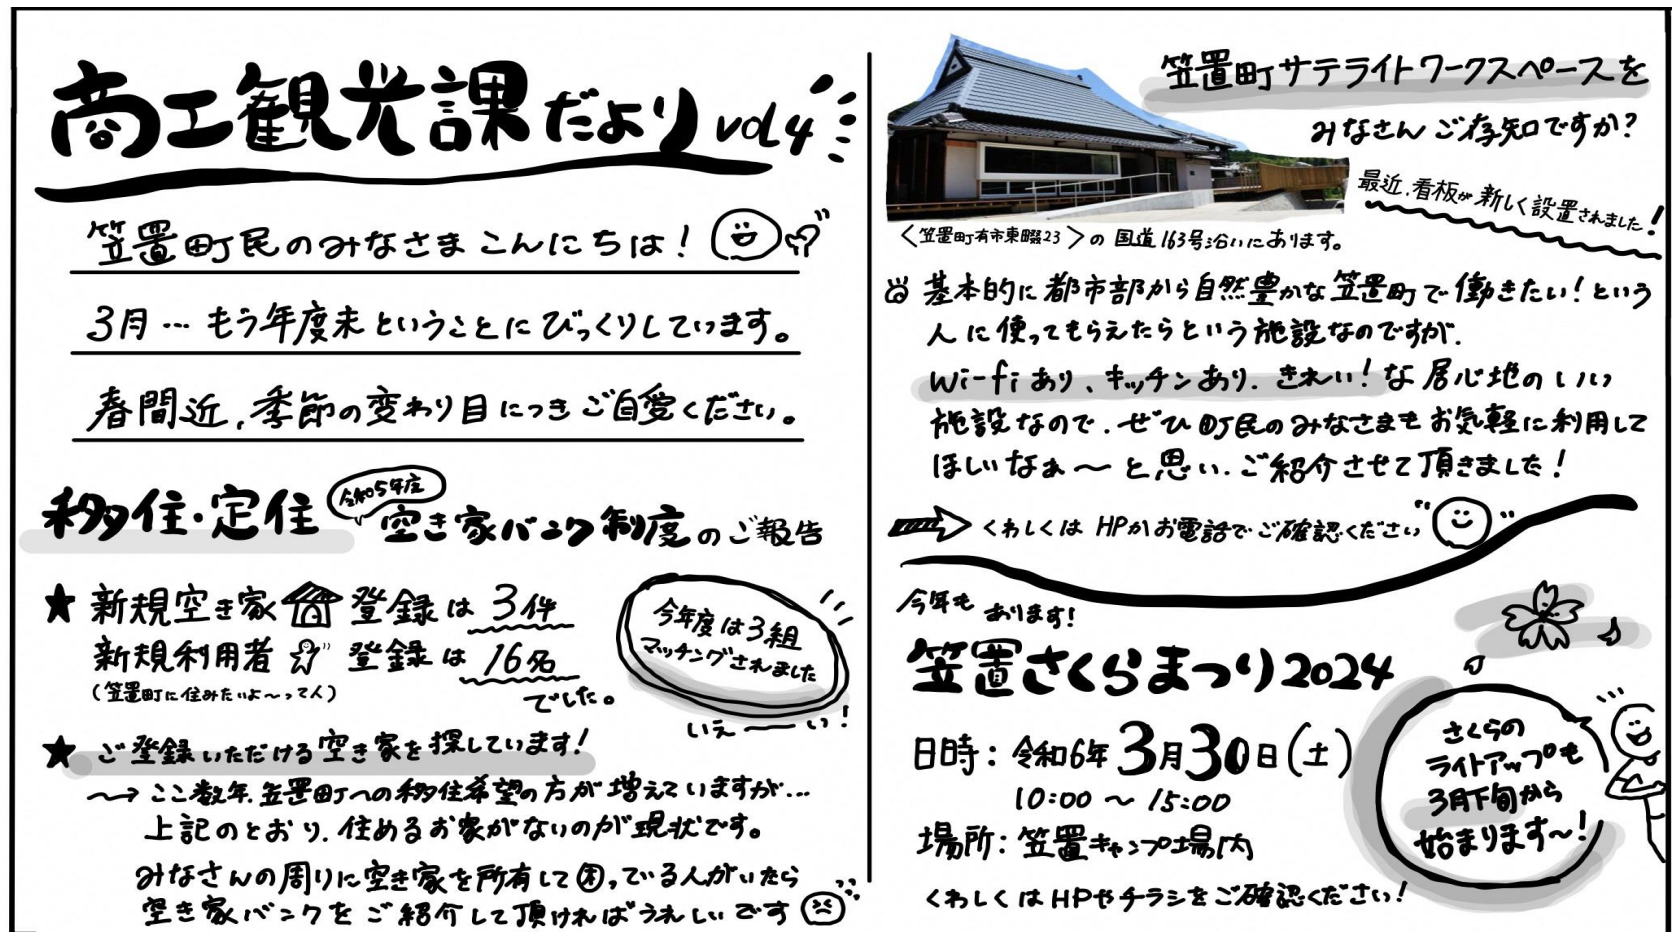 商工観光課だより vol4
笠置町民のみなさまこんにちは!
3月…もう年度末ということにびっくりしています。
春間近、季節の変わり目につきご自愛ください。
移住・定住
令和5年度
空き家バンク制度のご報告
★ 新規空き家 登録は 3件
新規利用者 登録は 16名
(笠置町に住みたいよ〜って人)
でした。
今年度は3組
マッチングされました
いえーーい!
★ ご登録いただける空き家を探しています!
〜→ ここ数年、笠置町への移住希望の方が増えていますが…
上記のとおり、住めるお家がないのが現状です。
みなさんの周りに空き家を所有して困っている人がいたら
空き家バンクをご紹介して頂ければうれしいです
笠置町サテライトワークスペースを
みなさんご存知ですか?
最近、看板が新しく設置されました!
<笠置町有市東畷23>の国道163号沿いにあります。
基本的に都市部から自然豊かな笠置町で働きたい!という
人に使ってもらえたらという施設なのですが、
Wi-fiあり、キッチンあり、きれい!な居心地のいい
施設なので、ぜひ町民のみなさまもお気軽に利用して
ほしいなぁ〜と思い、ご紹介させて頂きました!
くわしくはHPかお電話でご確認ください
今年もあります!
笠置さくらまつり2024
日時:令和6年3月30日(土)
10:00〜15:00
場所:笠置キャンプ場内
くわしくはHPやチラシをご確認ください!
さくらの
ライトアップも
3月下旬から
始まります〜!